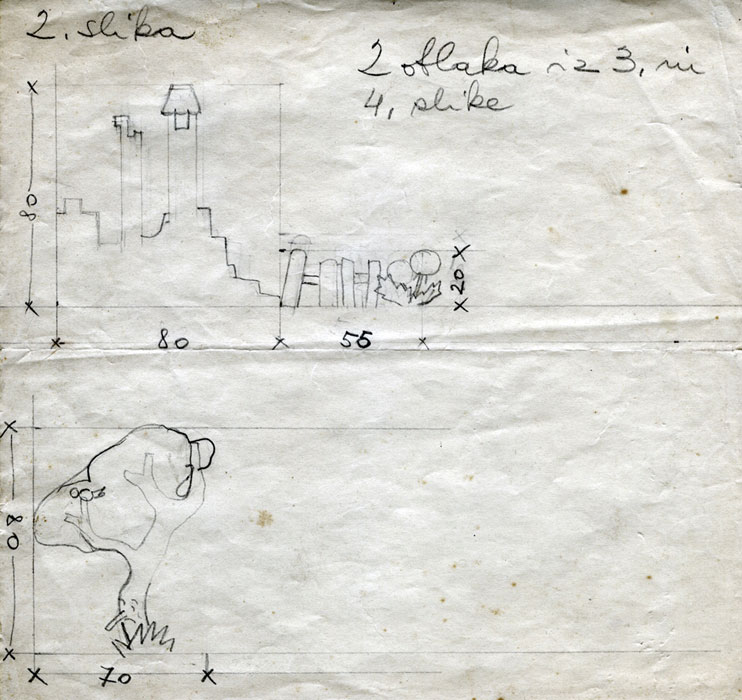 2. slika
2 oblaka iz 3, in
4, slike
80
20
80
55
80
70